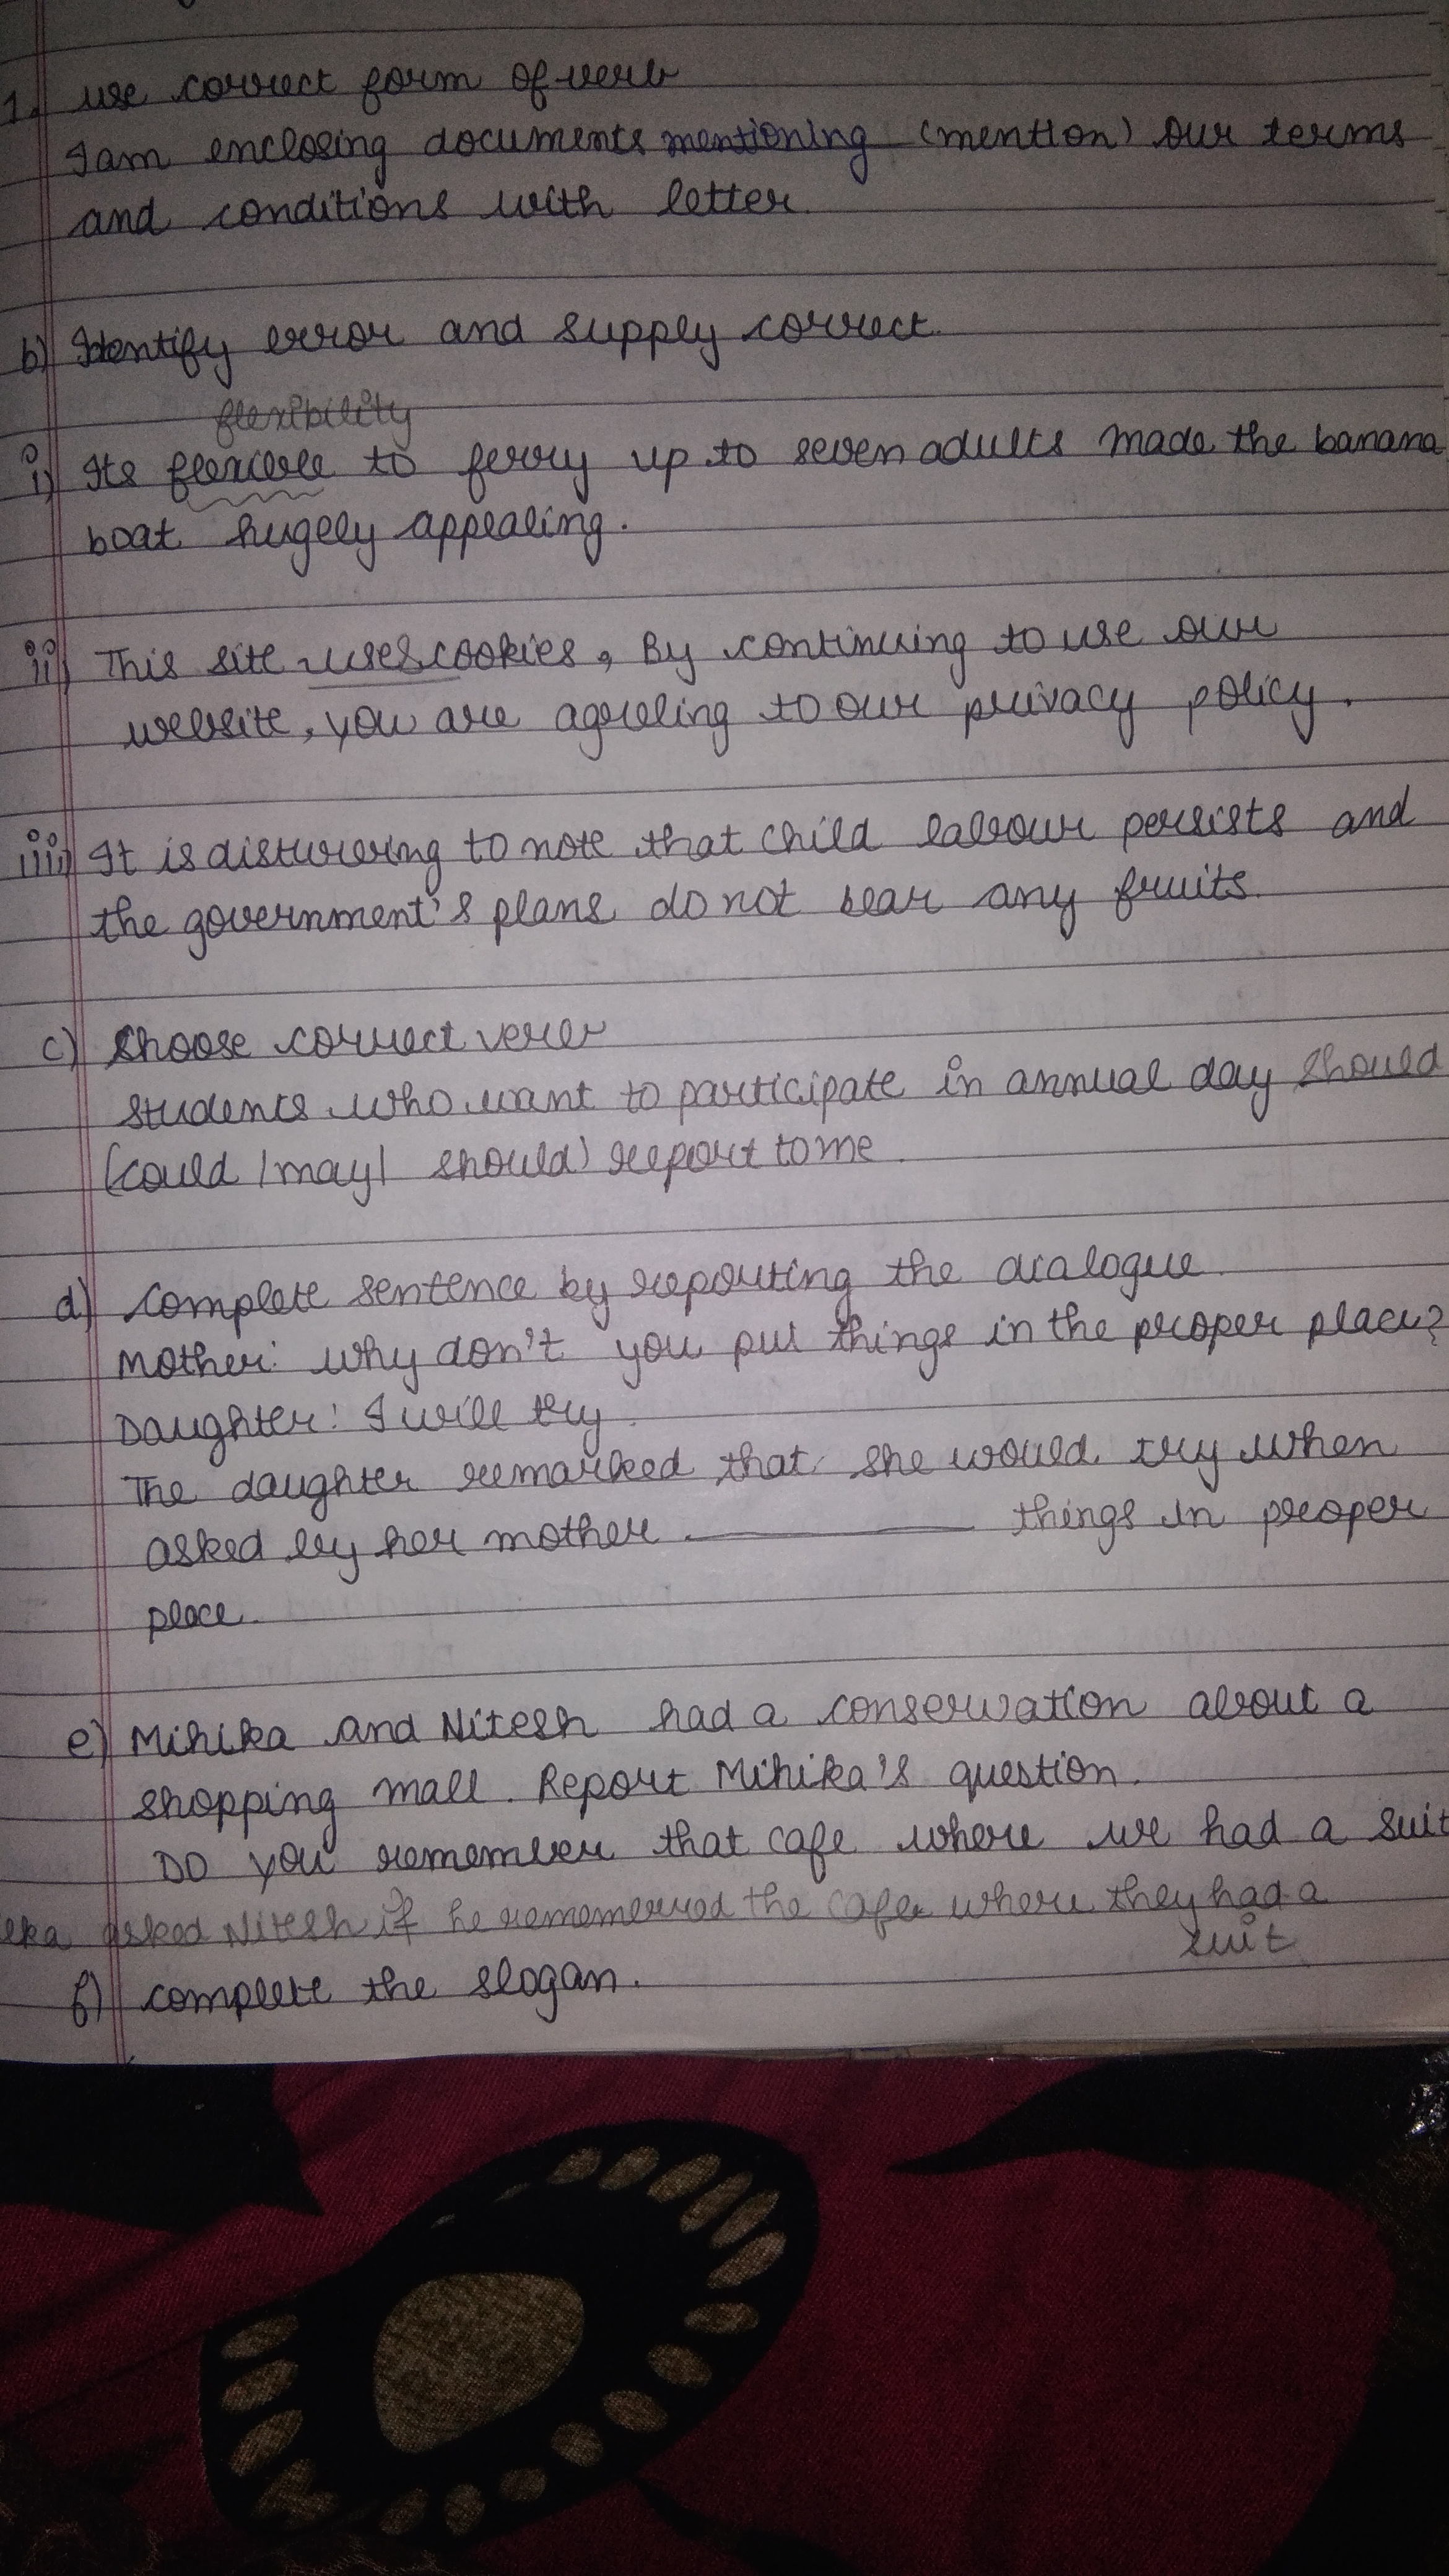 1. use correct form of verb
I am enclosing documents mentioning (mention) our terms
and conditions with letter.
b) Identify error and supply correct.
flexibility
i) Its flexible to ferry up to seven adults made the banana
boat hugely appealing.
ii) This site uses cookies, By continuing to use our
website, you are agreeing to our privacy policy.
iii) It is disturbing to note that child labour persists and
the government's plans do not bear any fruits.
c) Choose correct verb
students who want to participate in annual day should
(could / may / should) report to me.
d) Complete sentence by reporting the dialogue.
Mother: why don't you put things in the proper place?
Daughter: I will try.
The daughter remarked that she would try when
asked by her mother __________ things in proper
place.
e) Mihika and Nitesh had a conservation about a
shopping mall. Report Mihika's question.
Do you remember that cafe where we had a suit
eka asked Nitesh if he rememerred the cafe where they had a
suit
f) complete the slogan.